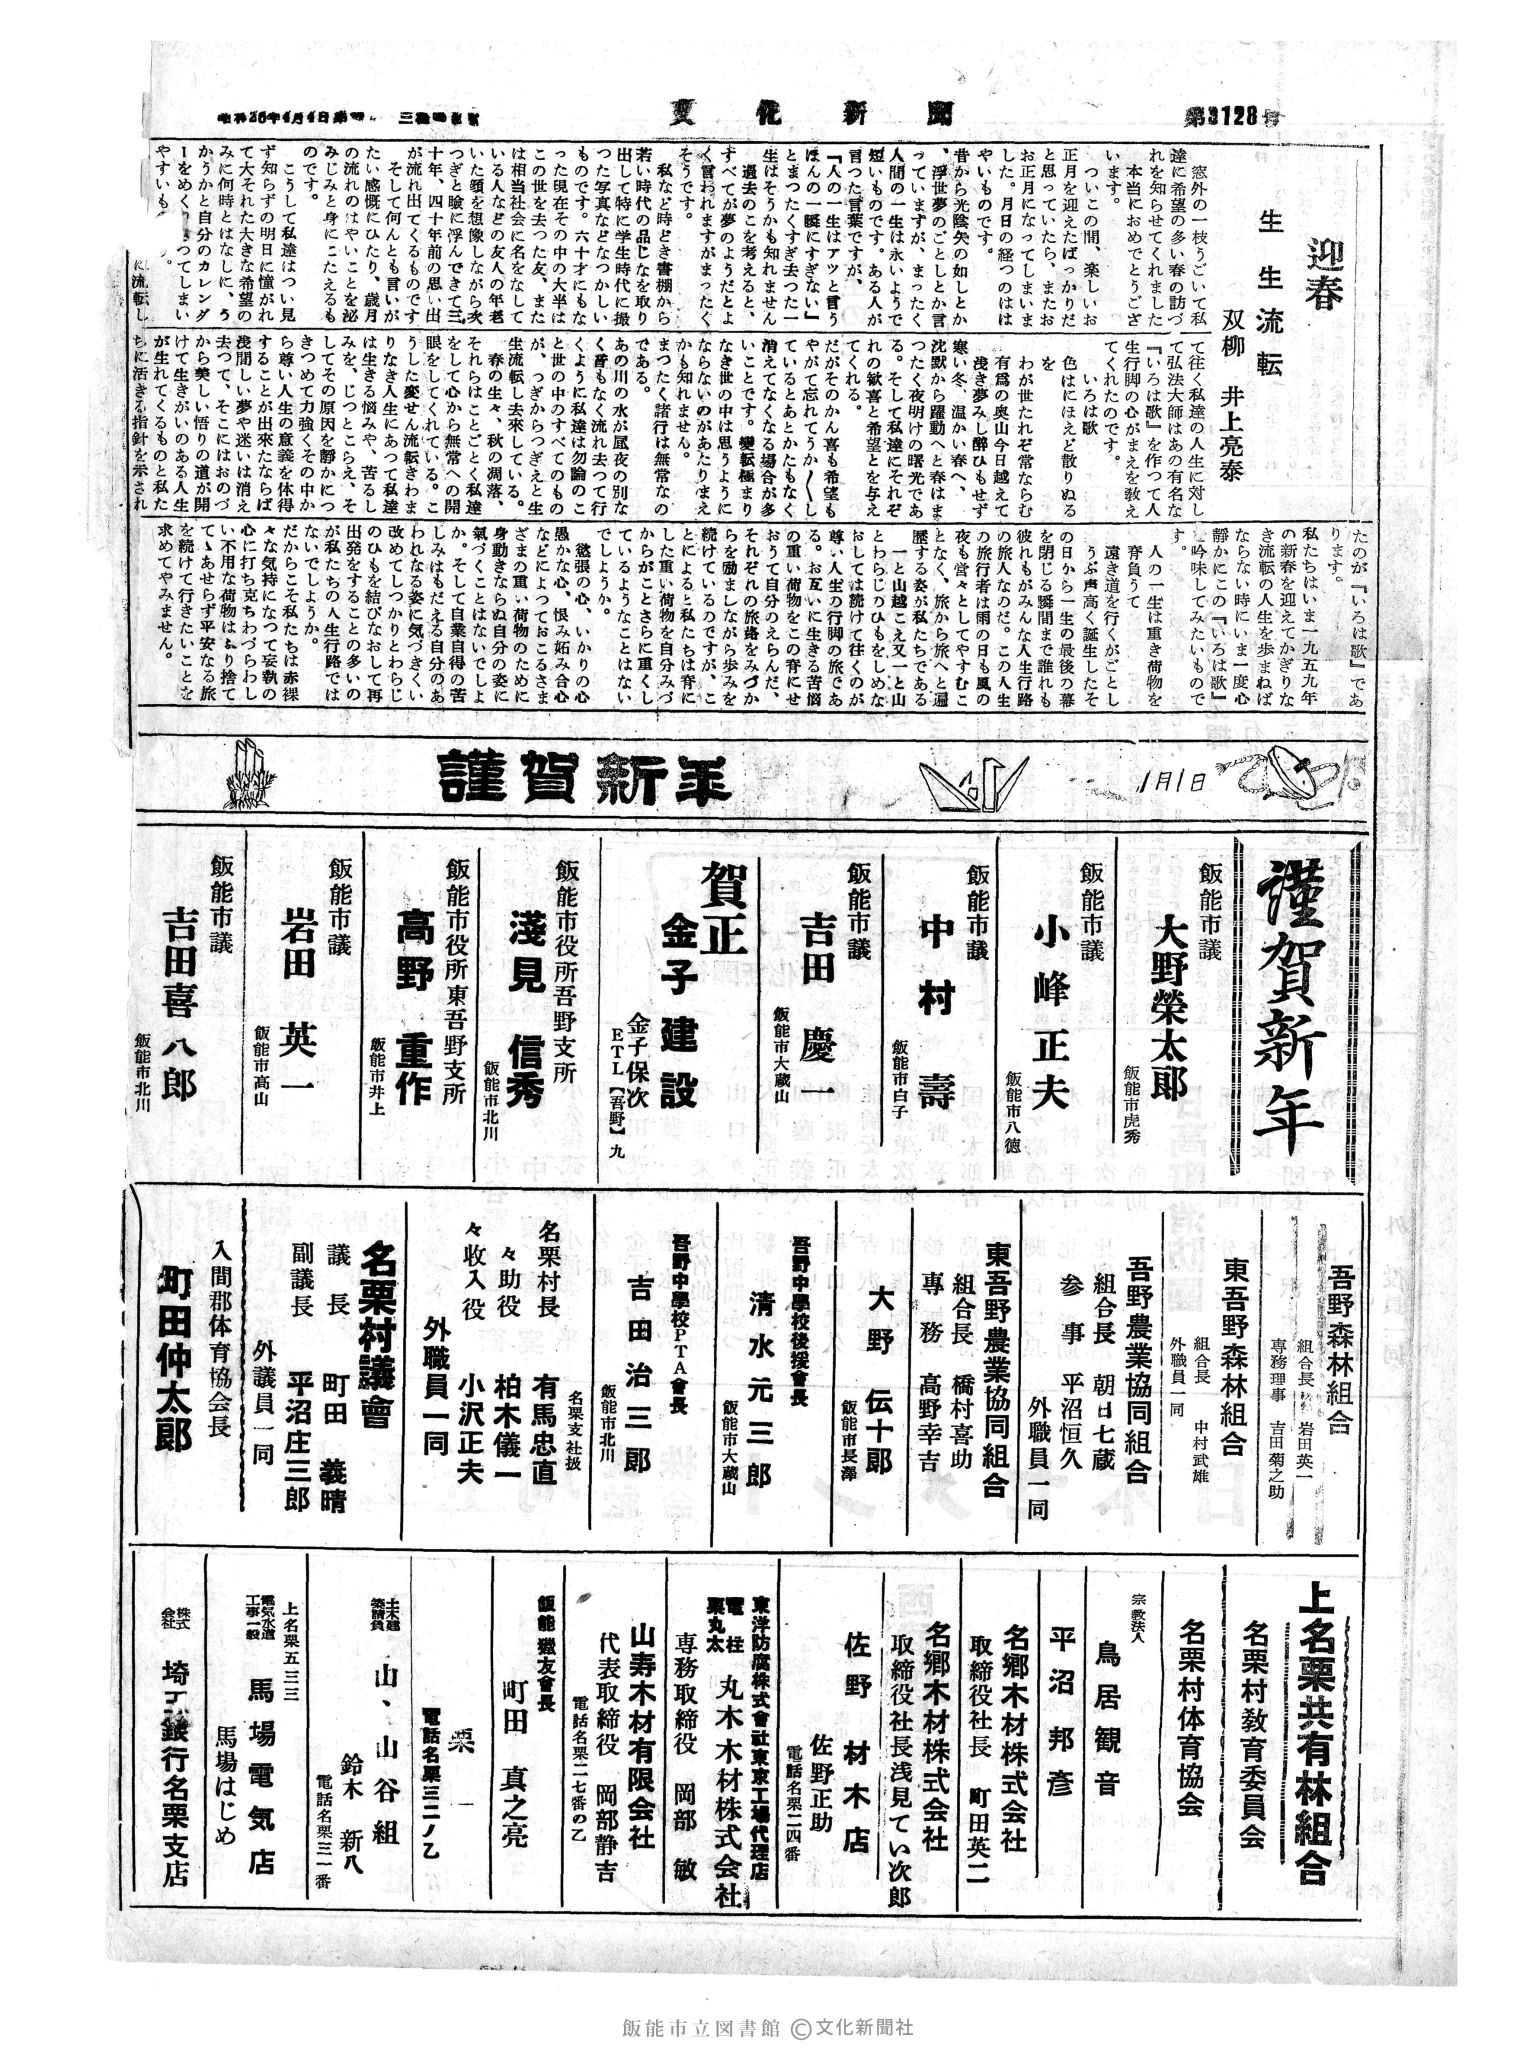 第3128号
文化新聞
迎春
生生流転
双柳 井上亮泰
窓外の一枝うごいて私
達に希望の多い春の訪づ
れを知らせてくれました
本当におめでとうござ
います。
ついこの間、楽しいお
正月を迎えたばっかりだ
と思っていたら、またお
お正月になってしまいま
した。月日の経つのはは
やいものです。
昔から光陰矢の如しとか
、浮世夢のごとしとか言
っていますが、まったく
人間の一生は永いようで
短いものです。ある人が
言つた言葉ですが、
「人の一生はアッと言う
ほんの一瞬にすぎない」
とまつたくすぎ去つた一
生はそうかも知れません
過去のこを考えると、
すべてが夢のようだとよ
く言われますがまったく
そうです。
私など時どき書棚から
若い時代の品じなを取り
出して特に学生時代に撮
つた写真などなつかしい
ものです。六十才にもな
つた現在その中の大半は
この世を去つた友、また
は相当社会に名をなして
いる人などの友人の年老
いた顔を想像しながら次
つぎと瞼に浮んできて三
十年、四十年前の思い出
が流れ出てくるものです
そして何んとも言いが
たい感慨にひたり、歳月
の流れのはやいことを泌
みじみと身にこたえるも
のです。
こうして私達はつい見
ず知らずの明日に憧がれ
て大それた大きな希望の
みに何時とはなしに、う
かうかと自分のカレンダ
ーをめくり
つてしまい
やすいも
に流転し
て往く私達の人生に対し
て弘法大師はあの有名な
『いろは歌』を作つて人
生行脚の心がまえを教え
てくれたのです。
いろは歌
色はにほえど散りぬる
を
わが世たれぞ常ならむ
有爲の奥山今日越えて
浅き夢みし醉ひもせず
寒い冬、温かい春へ、
沈黙から躍動へと春はま
つたく夜明けの曙光であ
る。そして私達にそれぞ
れの歓喜と希望とを与え
てくれる。
だがそのかん喜も希望も
やがて忘れてうか〳〵し
ているとあとかたもなく
消えてなくなる場合が多
いことです。變転極まり
なき世の中は思うように
ならないのがあたりまえ
かも知れません。
まつたく諸行は無常なの
である。
あの川の水が昼夜の別な
く音もなく流れ去つて行
くように私達は勿論のこ
と世の中のすべてのもの
が、つぎからつぎえと生
生流転し去來している。
春の生々、秋の凋落、
それらはことごとく私達
をして心から無常への開
眼をしてくれている。こ
うした変せん流転きわま
りなき人生にあつて私達
は生きる悩みや、苦るし
みを、じつとこらえ、そ
してその原因を靜かにつ
きつめて力強くその中か
ら尊い人生の意義を体得
することが出來たならば
浅間しい夢や迷いは消え
去つて、そこにはおのづ
から美しい悟りの道が開
けて生きがいのある人生
が生れてくるものと私た
ちに活きる指針を示され
たのが『いろは歌』であ
ります。
私たちはいま一九五九年
の新春を迎えてかぎりな
き流転の人生を歩まねば
ならない時にいま一度心
靜かにこの『いろは歌』
を吟味してみたいもので
す。
人の一生は重き荷物を
脊負うて
遠き道を行くがごとし
うぶ声高く誕生したそ
の日から一生の最後の幕
を閉じる瞬間まで誰れも
彼れもがみんな人生行路
の旅人なのだ。この人生
の旅行者は雨の日も風の
夜も営々としてやすむこ
となく、旅から旅へと遍
歴する姿が私たちである
一と山越こえ又一と山
とわらじのひもをしめな
おしては続けて往くのが
尊い人生の行脚の旅であ
る。お互いに生きる苦悩
の重い荷物をこの脊にせ
おうて自分のえらんだ、
それぞれの旅路をみづか
らを励ましながら歩みを
続けているのですが、こ
とによると私たちは脊に
した重い荷物を自分みづ
からがことさらに重くし
ているようなことはない
でしようか。
慾張の心、いかりの心
愚かな心、恨み妬み合心
などによつておこるさま
ざまの重い荷物のために
身動きならぬ自分の姿に
氣づくことはないでしよ
か。そして自業自得の苦
しみはもだえる自分のあ
われなる姿に気づきくい
改めてしつかりとわらじ
のひもを結びなおして再
出発をすることの多いの
が私たちの人生行路では
ないでしようか。
だからこそ私たちは赤裸
々な気持になつて妄執の
心に打ち克ちわづらわし
い不用な荷物はふり捨て
てゝあせらず平安なる旅
を続けて行きたいことを
求めてやみません。
1月1日
謹賀新年
謹賀新年
飯能市議
大野榮太郎
飯能市虎秀
飯能市議
小峰正夫
飯能市八徳
飯能市議
中村壽
飯能市白子
飯能市議
吉田慶一
飯能市大蔵山
賀正
金子建設
金子保次
ETL【吾野】九
飯能市役所吾野支所
淺見信秀
飯能市北川
飯能市役所東吾野支所
高野重作
飯能市井上
飯能市議
岩田英一
飯能市高山
飯能市議
吉田喜八郎
飯能市北川
吾野森林組合
組合長 岩田英一
専務理事 吉田菊之助
東吾野森林組合
組合長 中村武雄
外職員一同
吾野農業協同組合
組合長 朝日七蔵
参事 平沼恒久
外職員一同
東吾野農業協同組合
組合長 橋村喜助
専務 高野幸吉
大野伝十郎
飯能市長澤
吾野中學校後援會長
清水元三郎
飯能市大蔵山
吾野中學校PTA會長
吉田治三郎
飯能市北川
名栗支社扱
名栗村長 有馬忠直
々助役 柏木儀一
々收入役 小沢正夫
外職員一同
名栗村議會
議長 町田義晴
副議長 平沼庄三郎
外議員一同
入間郡体育協会長
町田仲太郎
上名栗共有林組合
名栗村敎育委員会
名栗村体育協会
宗教法人
鳥居観音
平沼邦彦
名郷木材株式会社
取締役社長 町田英二
名郷木材株式会社
取締役社長浅見てい次郎
佐野材木店
佐野正助
電話名栗二四番
東洋防腐株式會社東京工場代理店
電柱
栗丸太
丸木木材株式会社
専務取締役 岡部敏
山寿木材有限会社
代表取締役 岡部静吉
電話名栗二七番の乙
飯能獵友會長
町田真之亮
栗
電話名栗三二ノ乙
土木建築請負
山、山谷組
鈴木新八
電話名栗三一番
上名栗五三三
電気水道工事一般
馬場電気店
馬場はじめ
株式会社
埼玉銀行名栗支店
飯能市立図書館 ©文化新聞社